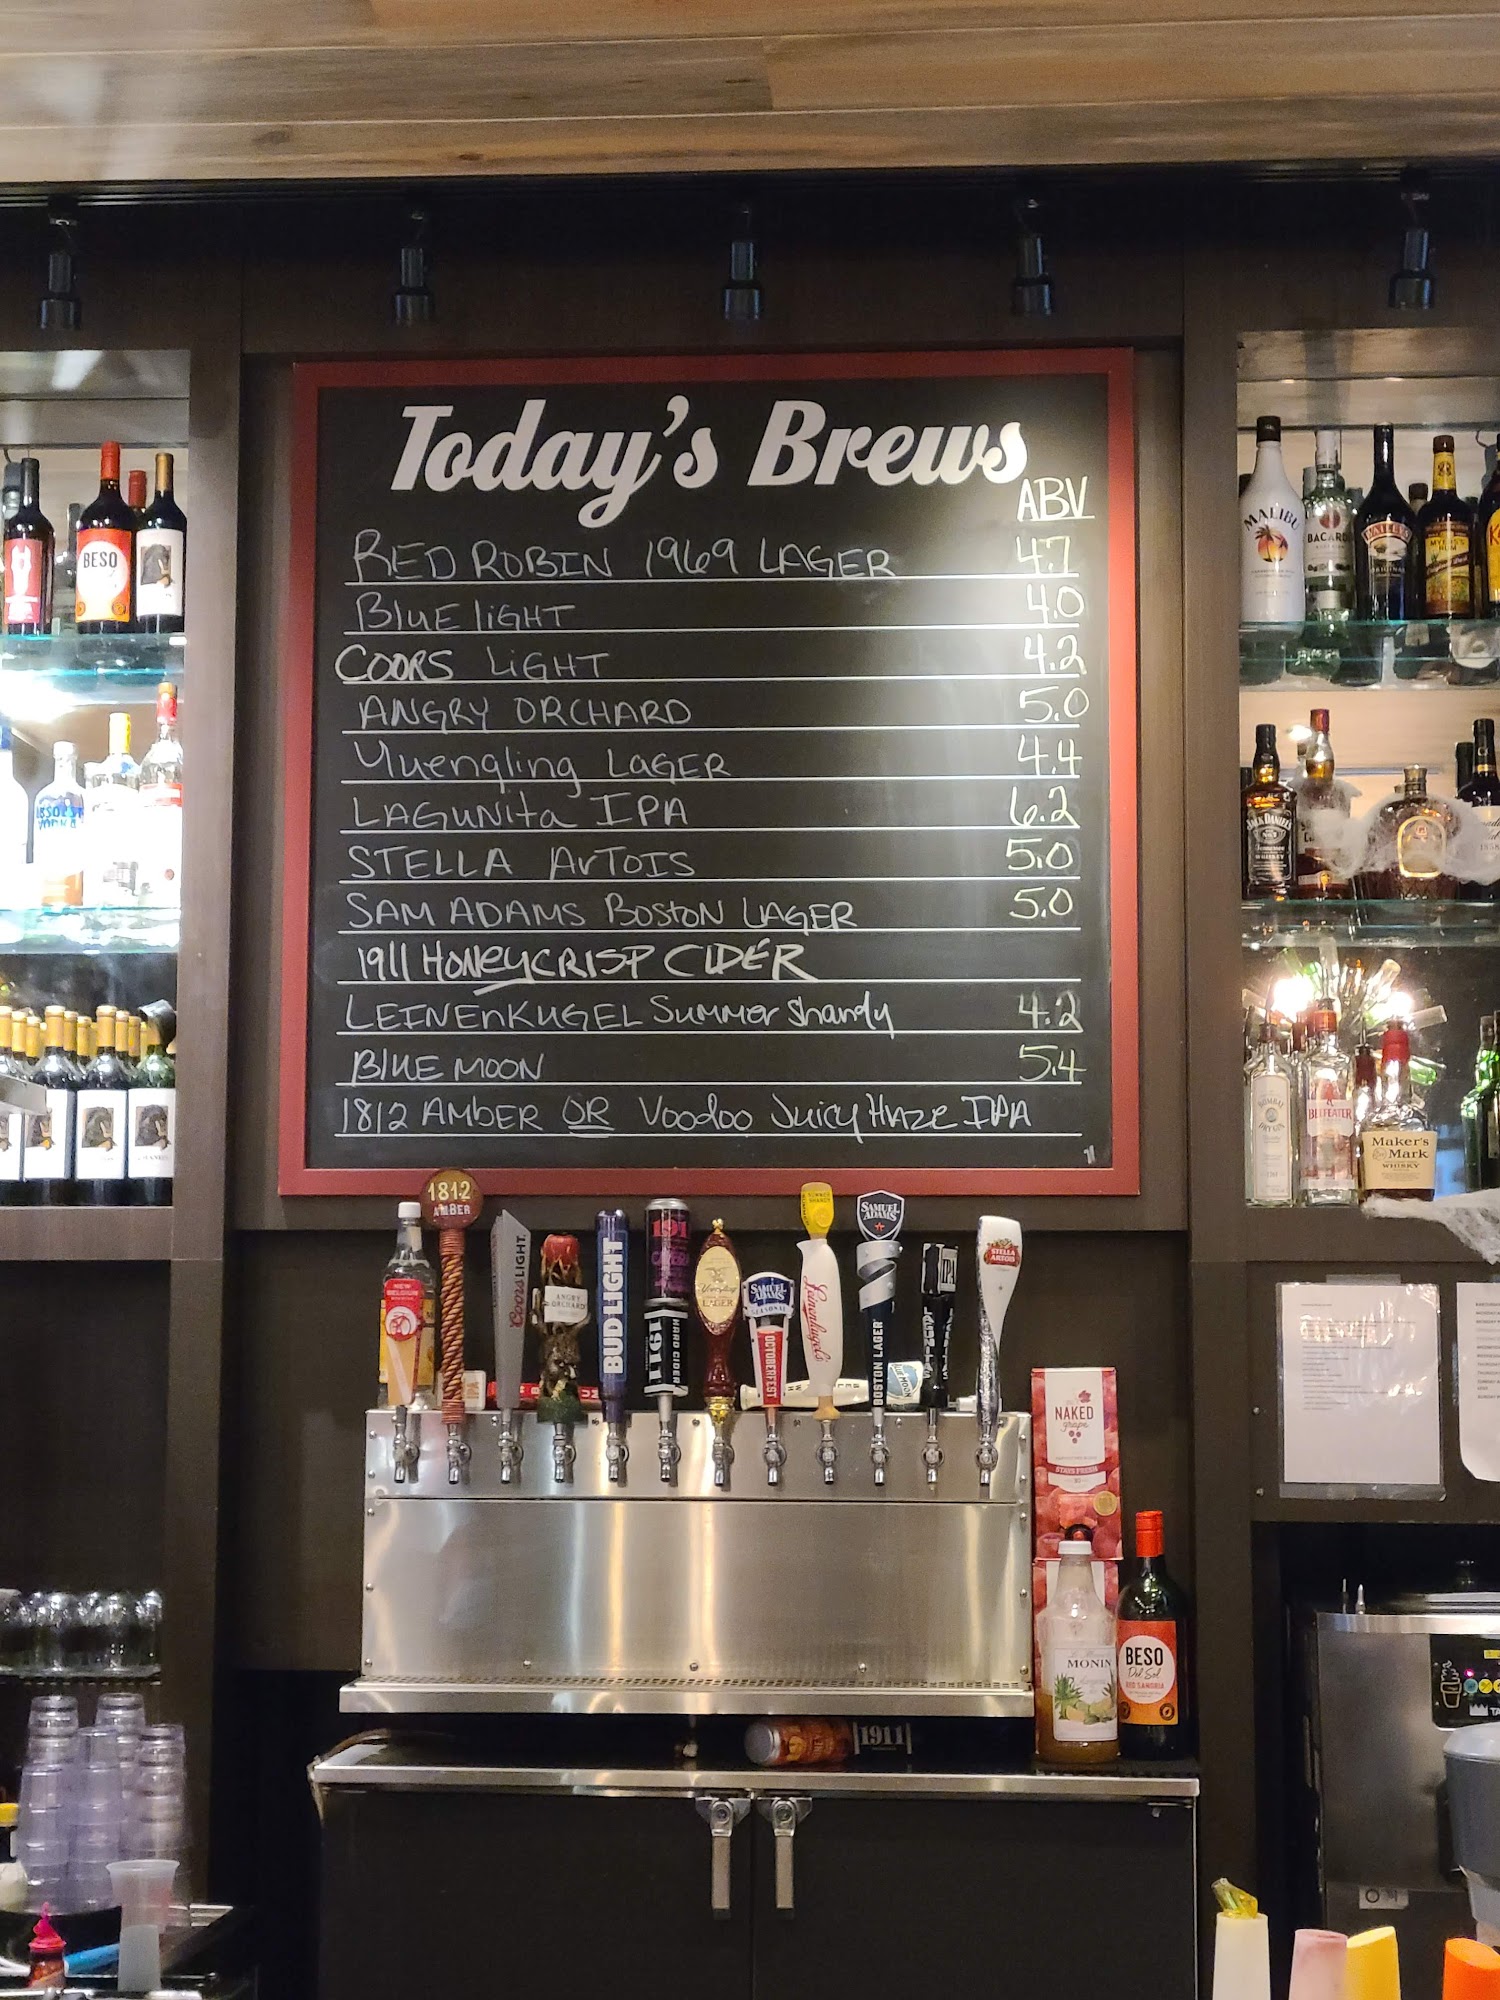 Today's Brews
ABV
RED ROBIN 1969 LAGER 4.7
Blue light 4.0
COORS LIGHT 4.2
ANGRY ORCHARD 5.0
Yuengling LAGER 4.4
LAGUNita IPA 6.2
STELLA ArTOIS 5.0
SAM ADAMS BOSTON LAGER 5.0
1911 HONEYCRISP CIDER
LEINENKUGEL Summer Shandy 4.2
BLUE MOON 5.4
1812 AMBER OR Voodoo Juicy Haze IPA
BESO
MALIBU
BACARDI
BAILEYS
ORIGINAL
MYERS'S
RUM
ABSOLUT
JACK DANIEL'S
BOMBAY
DRY GIN
BEEFEATER
Maker's
Mark
WHISKY
1812
AMBER
NEW
BELGIUM
Coors LIGHT
ANGRY
ORCHARD
BUD LIGHT
1911
HARD CIDER
Yuengling
LAGER
SAMUEL
ADAMS
SEASONAL
OCTOBERFEST
SUMMER
SHANDY
Leinenkugel's
SAMUEL
ADAMS
BOSTON LAGER
MOON
IPA
LAGUNITAS
STELLA
ARTOIS
NAKED
grape
STAYS FRESH
MONIN
BESO
Del Sol
RED SANGRIA
1911